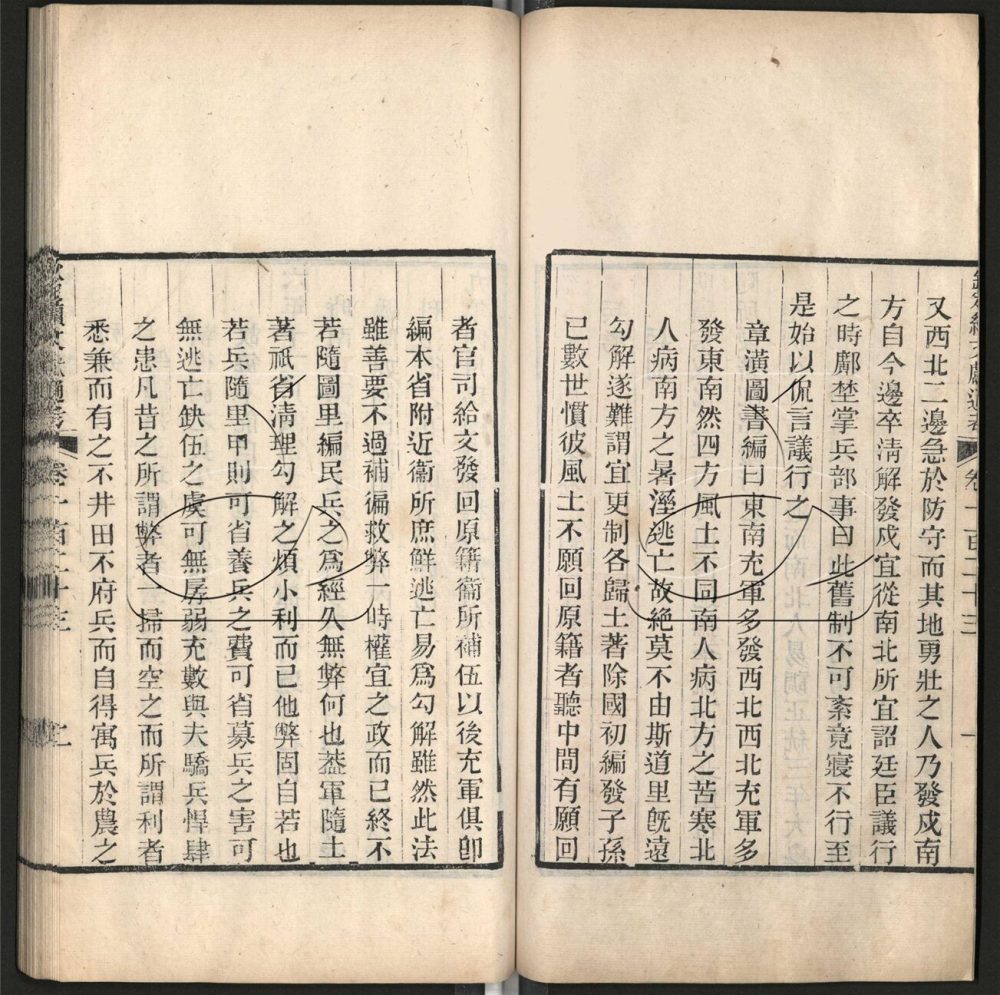 欽定續文獻通考
卷一百二十三
又西北二邊急於防守而其地勇壯之人乃發戍南
方自今邊卒清解發戍宜從南北所宜詔廷臣議行
之時鄺埜掌兵部事曰此舊制不可紊竟寢不行至
是始以侃言議行之
章潢圖書編曰東南充軍多發西北西北充軍多
發東南然四方風土不同南人病北方之苦寒北
人病南方之暑溼逃亡故絶莫不由斯道里旣遠
勾解遂難謂宜更制各歸土著除國初編發子孫
已數世慣彼風土不願回原籍者聽中間有願回
者官司給文發回原籍衞所補伍以後充軍俱卽
編本省附近衞所庶鮮逃亡易爲勾解雖然此法
雖善要不過補徧救弊一時權宜之政而已終不
若隨圖里編民兵之爲經久無弊何也葢軍隨土
著祇省清理勾解之煩小利而已他弊固自若也
若兵隨里甲則可省養兵之費可省募兵之害可
無逃亡缺伍之虞可無孱弱充數與夫驕兵悍肆
之患凡昔之所謂弊者一掃而空之而所謂利者
悉兼而有之不井田不府兵而自得寓兵於農之
欽定續文獻通考
卷一百二十三